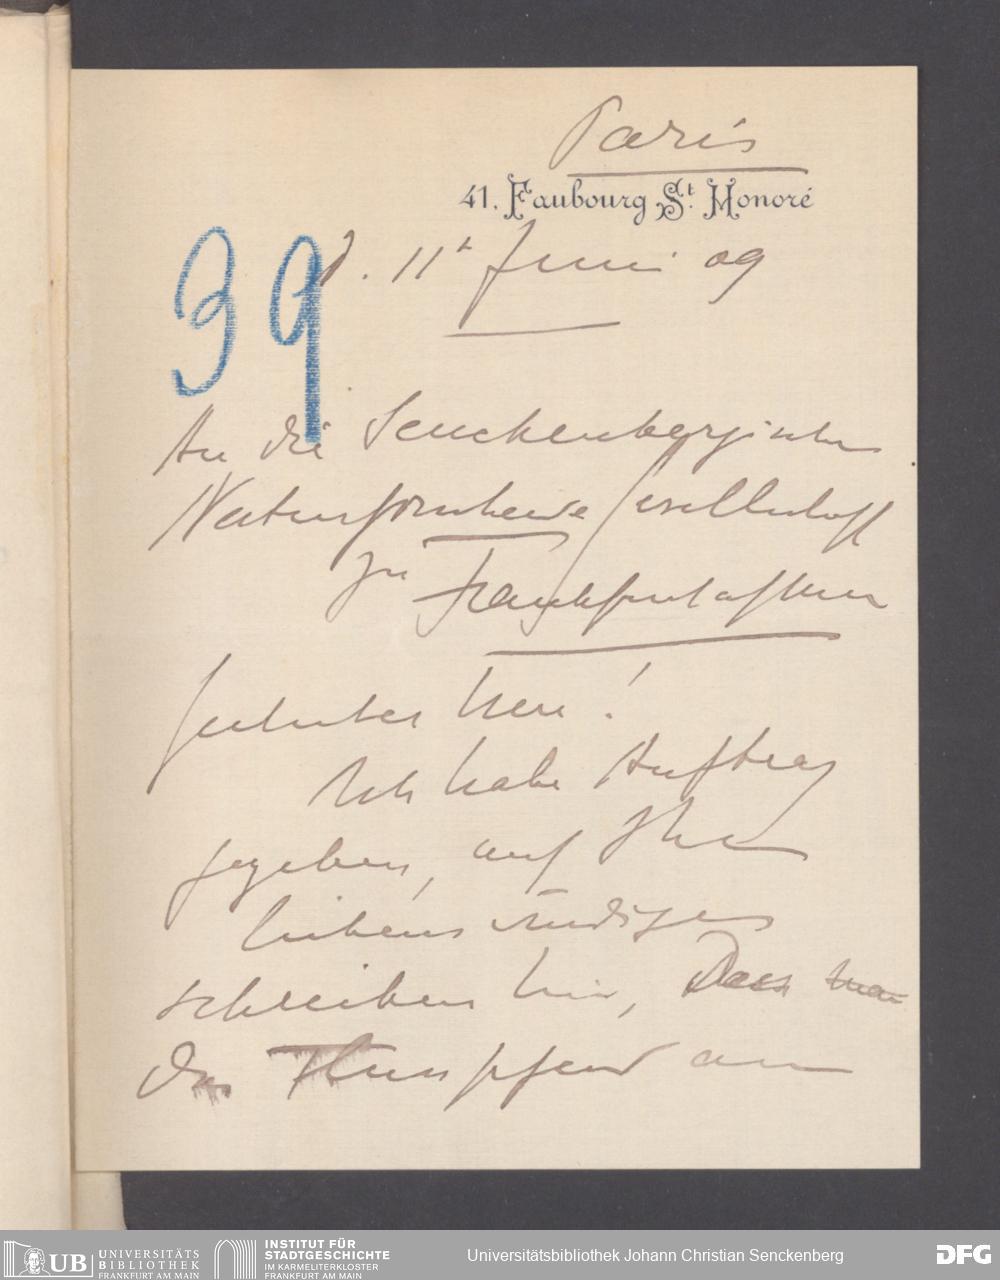 Paris
41. Faubourg St. Honoré
39
d. 11t Juni 09
An die Senckenbergische
Naturforschende Gesellschaft
zu Frankfurt a/Main
Geehrter Herr!
Ich habe Auftrag
gegeben, auf Ihr
liebenswürdiges
schreiben hin, dass
das Flusspferd am
UB UNIVERSITÄTS
BIBLIOTHEK
FRANKFURT AM MAIN
INSTITUT FÜR
STADTGESCHICHTE
IM KARMELITERKLOSTER
FRANKFURT AM MAIN
Universitätsbibliothek Johann Christian Senckenberg
DFG